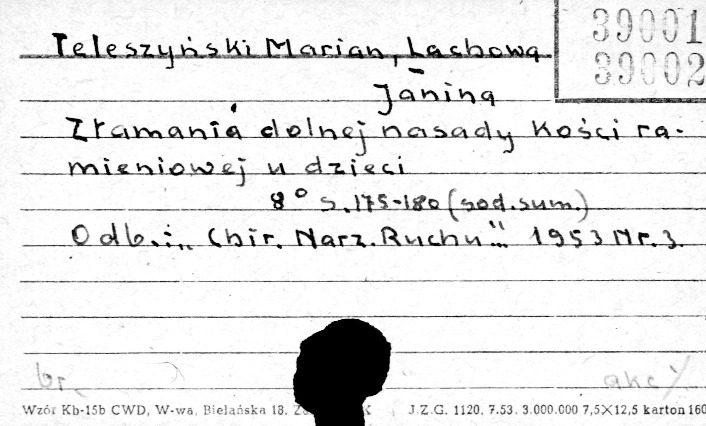 39001
39002
Teleszyński Marian, Lachowa
Janina
Złamania dolnej nasady kości ra-
mieniowej u dzieci
8° s. 175-180 (rod. sum.)
Odb.: „Chir. Narz. Ruchu" 1953 Nr. 3.
br. akc
Wzór Kb-15b CWD, W-wa, Bielańska 18. J.Z.G. 1120. 7.53. 3.000.000 7,5×12,5 karton 160